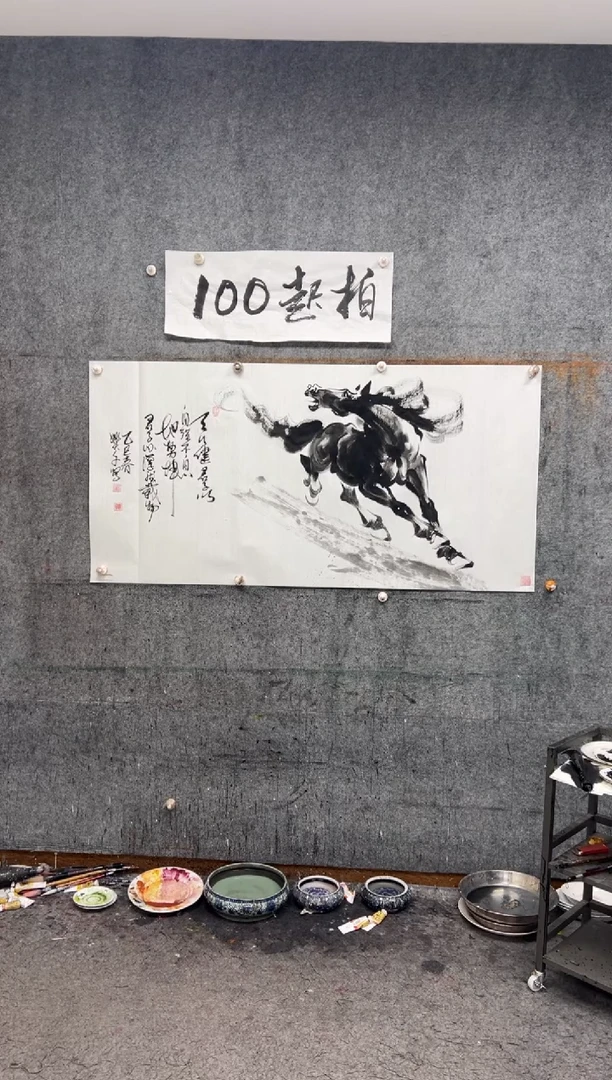 100起拍
天行健君子以
自强不息
地势坤
君子以厚德载物
乙巳春